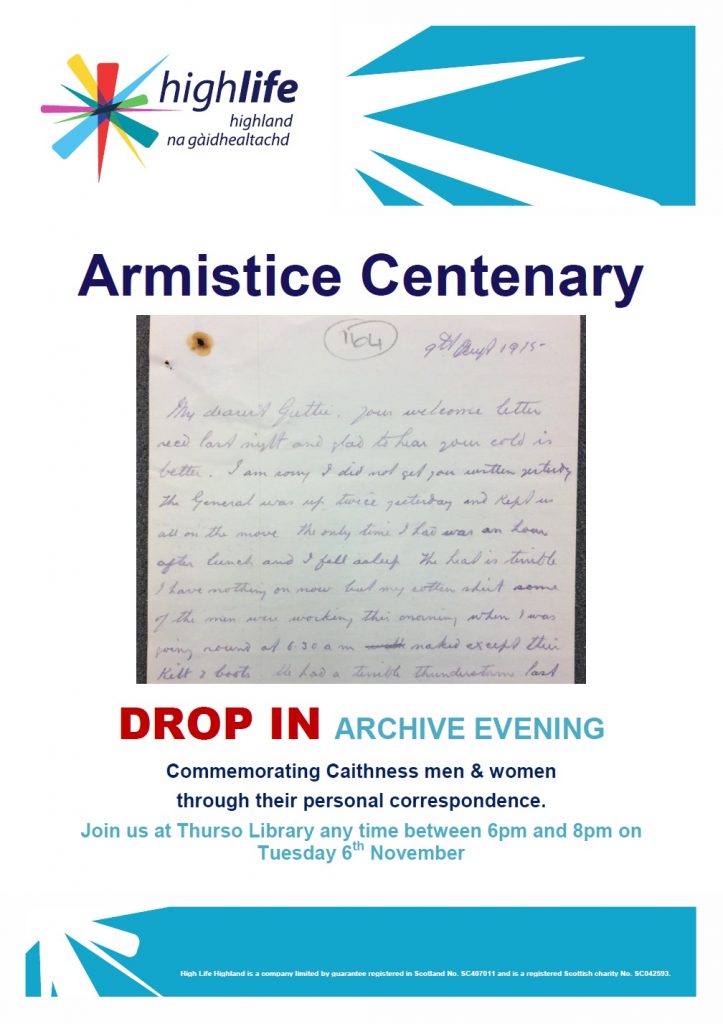 highlife
highland
na gàidhealtachd
Armistice Centenary
1164
9th Augt 1915-
My dearest Gertie. your welcome letter
recd last night and glad to hear your cold is
better. I am sorry I did not get you written yesterday
the General was up twice yesterday and kept us
all on the move the only time I had was an hour
after lunch and I fell asleep The heat is terrible
I have nothing on now but my cotton shirt some
of the men were working this morning when I was
going round at 6.30 am naked except their
Kilt & boots We had a terrible thunderstorm last
DROP IN ARCHIVE EVENING
Commemorating Caithness men & women
through their personal correspondence.
Join us at Thurso Library any time between 6pm and 8pm on
Tuesday 6th November
High Life Highland is a company limited by guarantee registered in Scotland No. SC407011 and is a registered Scottish charity No. SC042593.